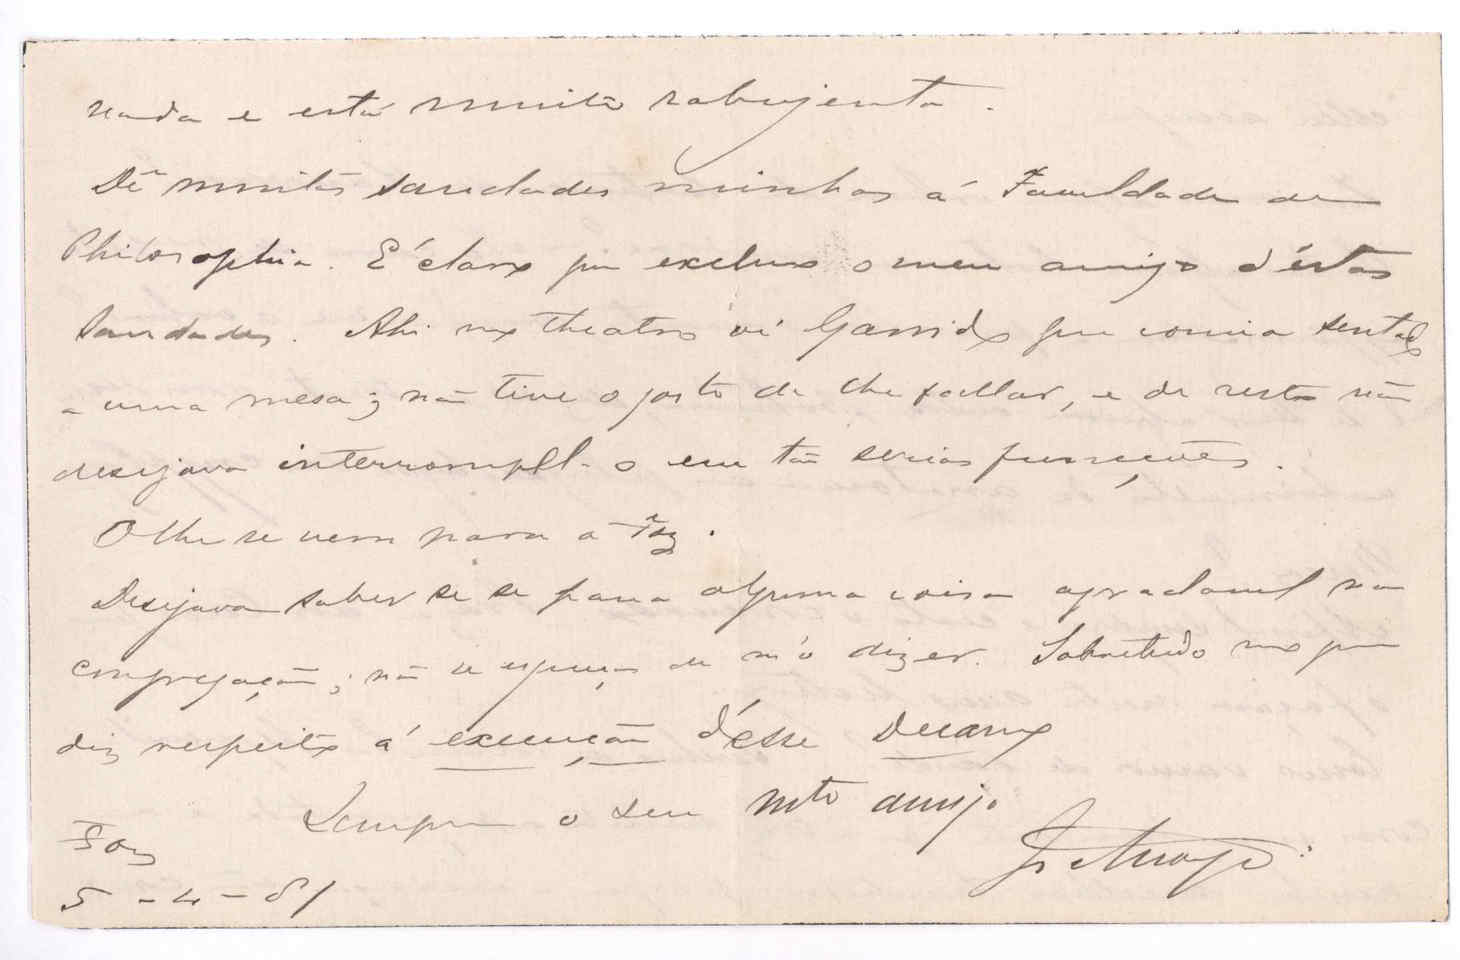 nada e está muito rabujenta.
Dê muitas saudades minhas á Faculdade de
Philosophia. É claro que excluo o meu amigo d'éstas
saudades. Ahi no theatro vi Garrido que comia sentado
a uma mesa; não tive o gosto de lhe fallar, e de resto não
desejava interrompel-o em tão serias funcções.
Olhe se vem para a Foz.
Desejava saber se se passa alguma coisa agradavel na
congregação; não se esqueça de m'o dizer. Sobretudo no que
diz respeito á execução d'esse Decano
Sempre o seu mto amigo
Foz
5-4-81